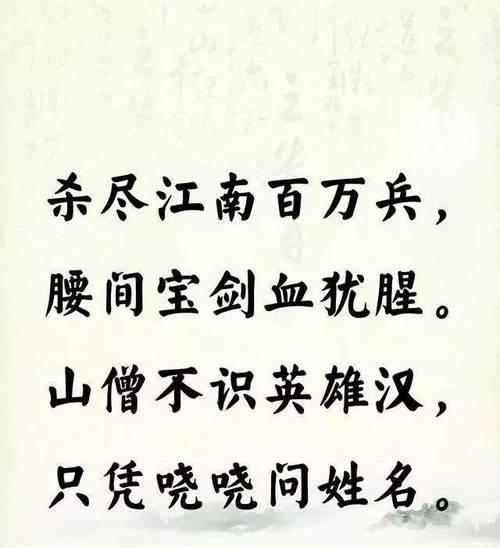 杀尽江南百万兵，
腰间宝剑血犹腥。
山僧不识英雄汉，
只凭哓哓问姓名。